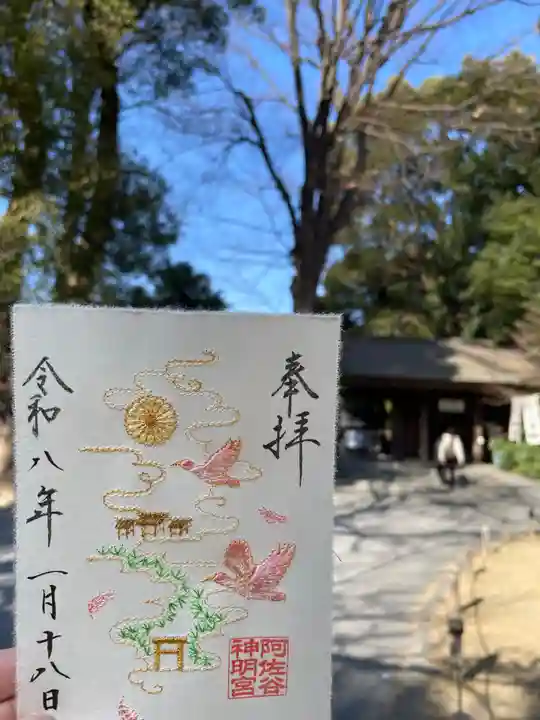 奉拝
阿佐谷
神明宮
令和八年一月十八日